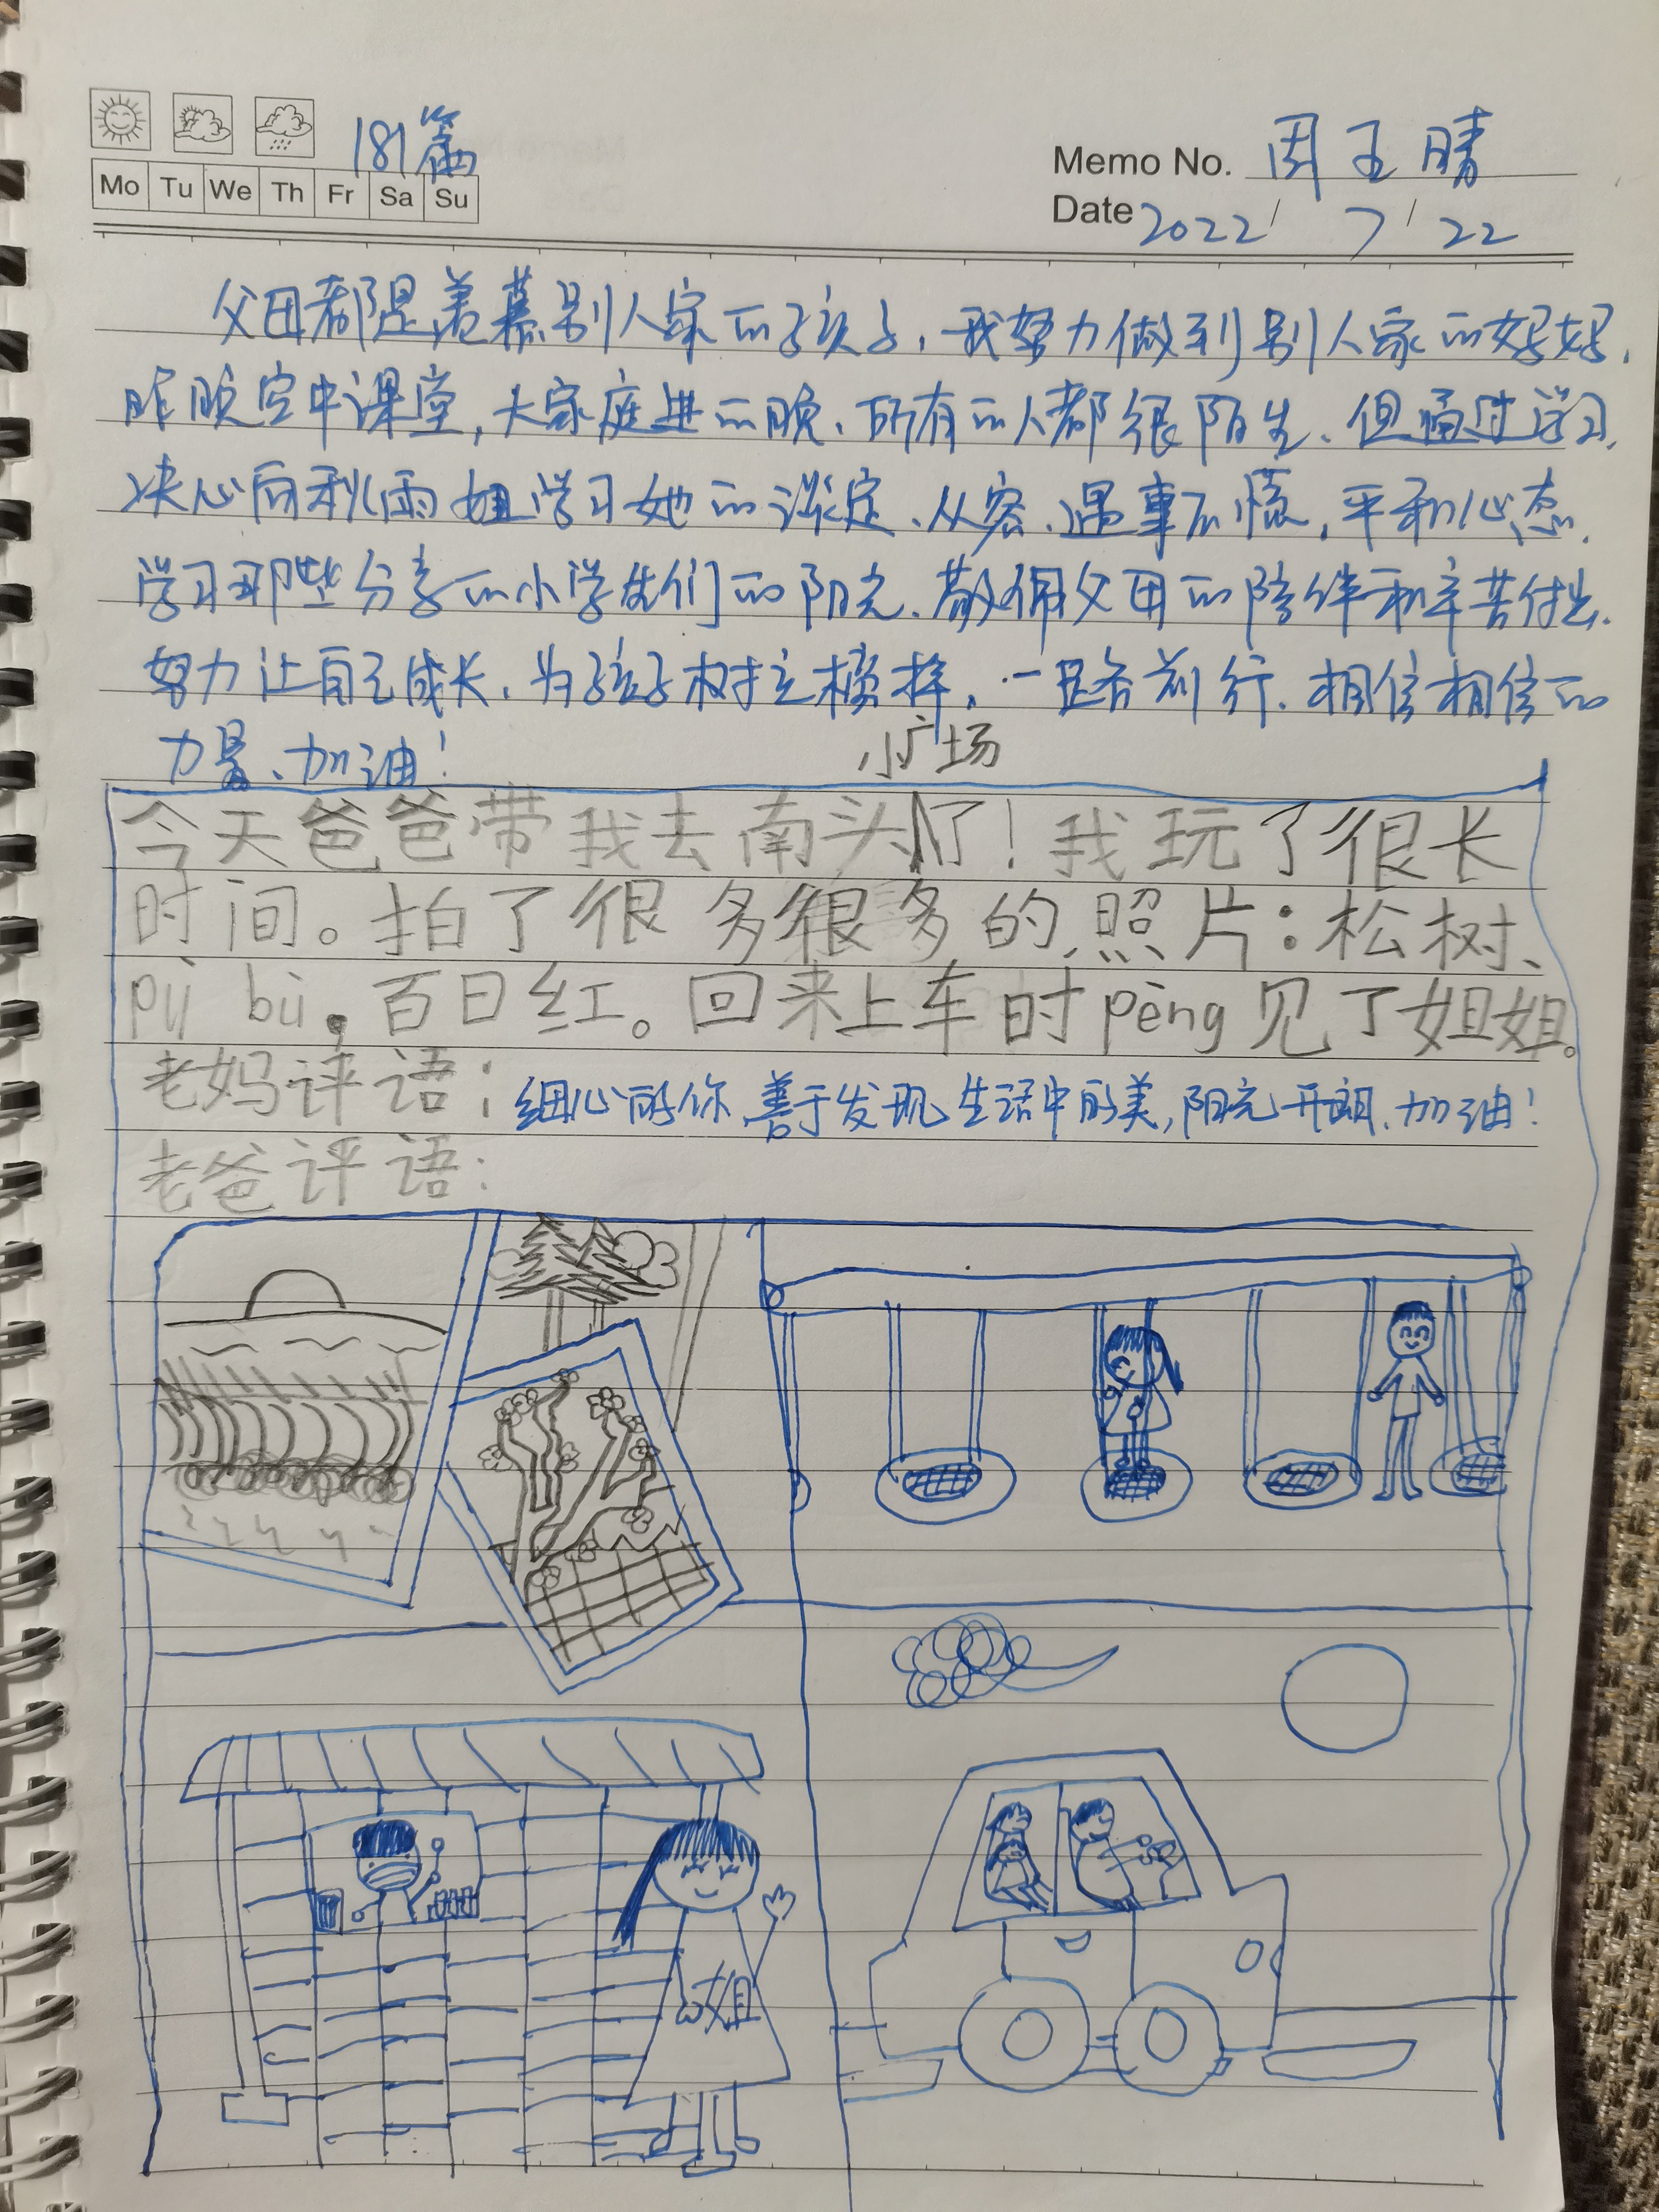 181篇
Mo Tu We Th Fr Sa Su
Memo No. 周玉晴
Date 2022 / 7 / 22
父母都是羡慕别人家的孩子,我努力做到别人家的好妈.
昨晚空中课堂,大家庭进的晚、所有的人都很陌生、但通过学习.
决心向秋雨姐学习她的淡定、从容、遇事不慌,平和心态.
学习那些分享的小学生们的阳光、敬佩父母的陪伴和辛苦付出.
努力让自己成长、为孩子树立榜样,一路前行.相信相信的
力量、加油!
小广场
今天爸爸带我去南头了!我玩了很长
时间。拍了很多很多的照片:松树、
pù bù,百日红。回来上车时pèng见了姐姐。
老妈评语:细心的你,善于发现生活中的美,阳光开朗.加油!
老爸评语:
姐